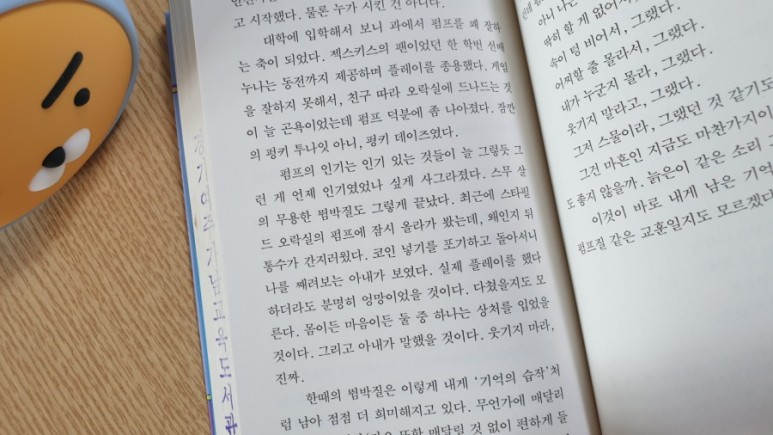 고 시작했다. 물론 누가 시킨 건 아니다.
대학에 입학해서 보니 과에서 펌프를 꽤 잘하
는 축이 되었다. 젝스키스의 팬이었던 한 학번 선배
누나는 동전까지 제공하며 플레이를 종용했다. 게임
을 잘하지 못해서, 친구 따라 오락실에 드나드는 것
이 늘 곤욕이었는데 펌프 덕분에 좀 나아졌다. 잠깐
의 펑키 투나잇 아니, 펑키 데이즈였다.
펌프의 인기는 인기 있는 것들이 늘 그렇듯 그
런 게 언제 인기였었나 싶게 사그라졌다. 스무 살
의 무용한 발박질도 그렇게 끝났다. 최근에 스타필
드 오락실의 펌프에 잠시 올라가 봤는데, 왜인지 뒤
통수가 간지러웠다. 코인 넣기를 포기하고 돌아서니
나를 째려보는 아내가 보였다. 실제 플레이를 했다
하더라도 분명히 엉망이었을 것이다. 다쳤을지도 모
른다. 몸이든 마음이든 둘 중 하나는 상처를 입었을
것이다. 그리고 아내가 말했을 것이다. 웃기지 마라,
진짜.
한때의 발박질은 이렇게 내게 ‘기억의 습작’처
럼 남아 점점 더 희미해지고 있다. 무언가에 매달리
또한 매달릴 것 없이 편하게 들
아니 나는
딱히 할 게 없어서,
속이 텅 비어서, 그랬다.
어찌할 줄 몰라서, 그랬다.
내가 누군지 몰라, 그랬다.
웃기지 말라고, 그랬다.
그저 스물이라, 그랬던 것 같기도
그건 마흔인 지금도 마찬가지이
도 좋지 않을까. 늙은이 같은 소리
이것이 바로 내게 남은 기억
펌프질 같은 교훈일지도 모르겠다